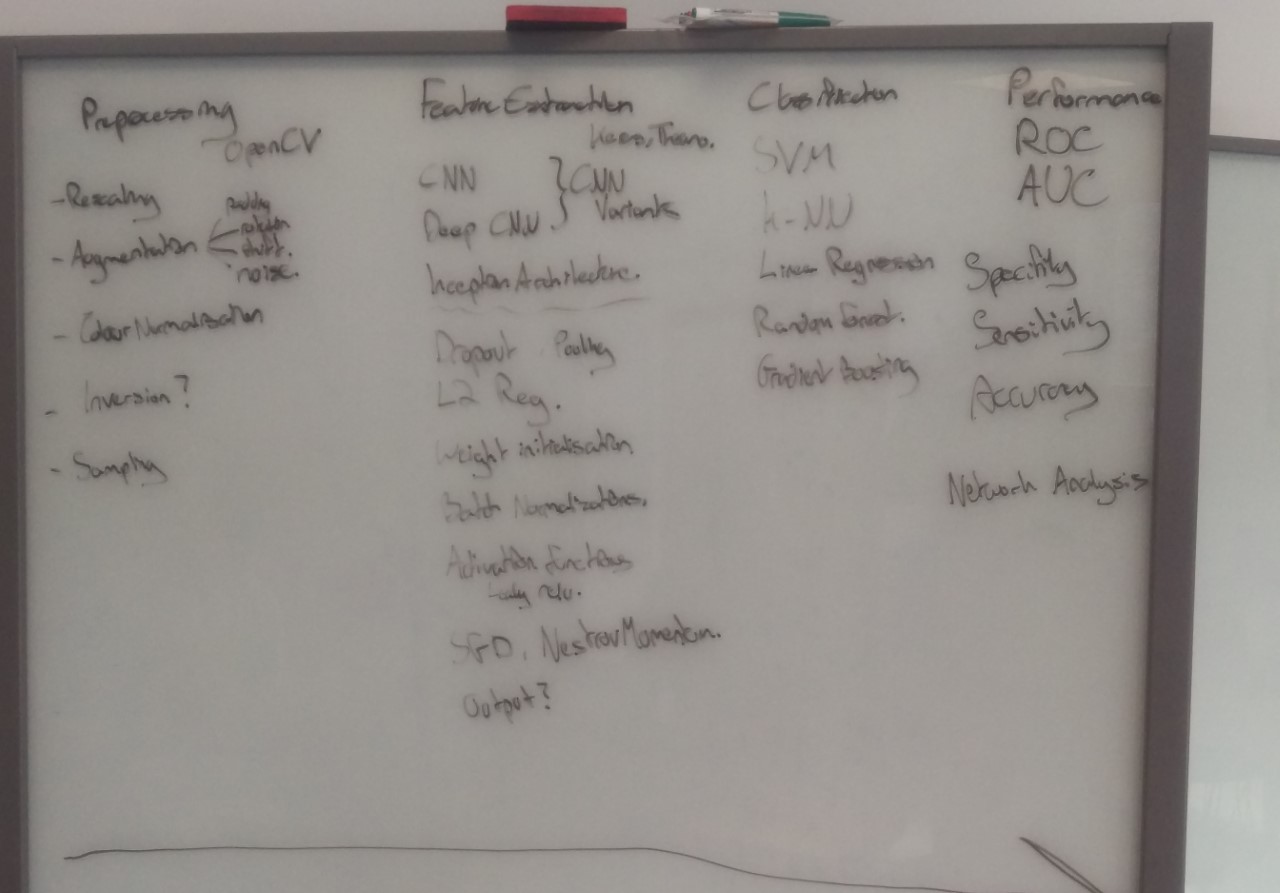 Preprocessing
OpenCV
- Rescaling
- Augmentation
padding
rotation
shift.
noise.
- Colour Normalisation
- Inversion?
- Sampling
Feature Extraction
Keras, Theano.
CNN
Deep CNN.
} CNN
Variants
Inception Architecture.
Dropout Pooling
L2 Reg.
Weight initialisation
Batch Normalizations.
Activation functions
Leaky relu.
SGD, Nestrov Momentum.
Output?
Classification
SVM
k-NN
Linear Regression
Random Forest.
Gradient Boosting
Performance
ROC
AUC
Specifity
Sensitivity
Accuracy
Network Analysis